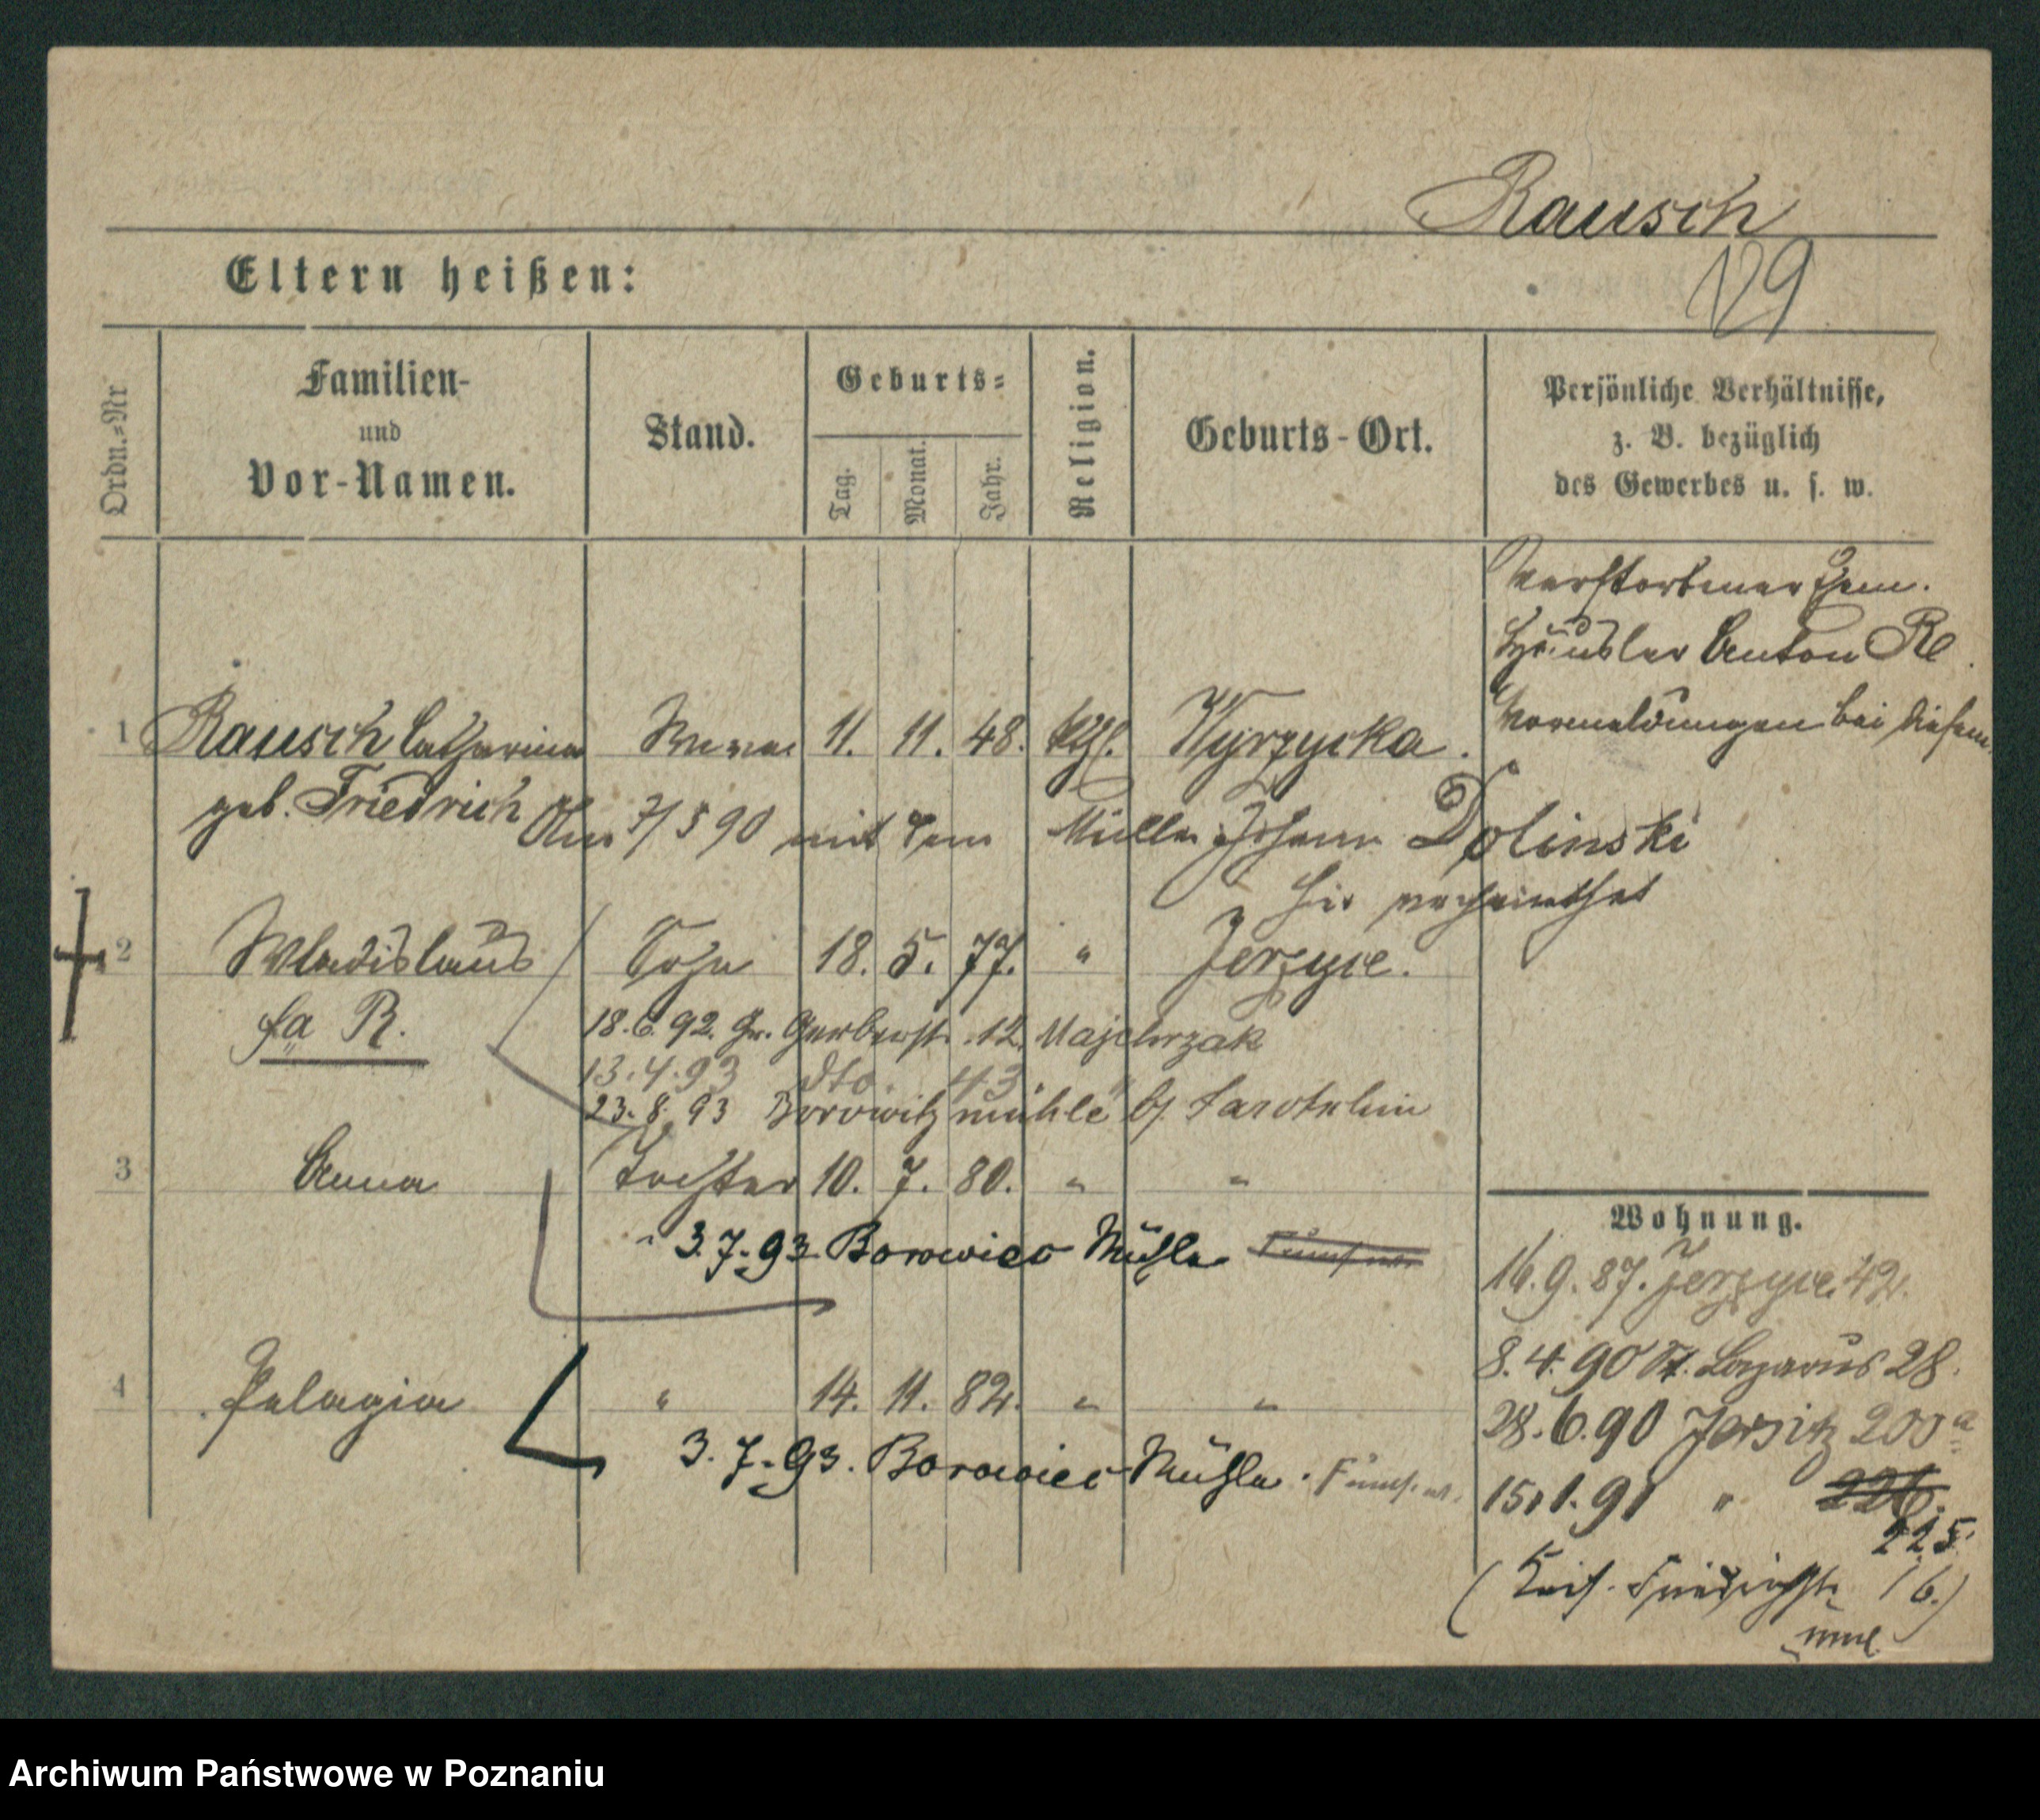 Rausch
129
Eltern heißen:
Ordn.=Nr
Familien-
und
Vor-Namen.
Stand.
Geburts=
Tag.
Monat.
Jahr.
Religion.
Geburts-Ort.
Persönliche Verhältnisse,
z. B. bezüglich
des Gewerbes u. s. w.
Verstorbener Ehem.
Häusler Anton R
Vormeldungen bei diesem.
1 Rausch Catharina Wwe 11. 11. 48. kthl. Wyrzycka.
geb. Friedrich
Am 7/5 90 mit dem Müller Johann Dolinski
hier verheirathet
2 Wladislaus Sohn 18. 5. 77. " Jerzyce.
fa R.
18.6.92. Gr. Gerberst. 12. Majchrzak
13.4.93 dto. 43 "
23.8.93 Borowitz mühle b/
3 Anna Tochter 10. 7. 80. " "
3.7.93 Borowiec Mühle
4 Pelagia " 14. 11. 82. " "
3.7.93. Borowiec Mühle.
Wohnung.
16.9.87. Jerzyce 42.
8.4.90 St. Lazarus 28.
28.6.90 Jersitz 200 a
15.1.91 " 226.
225.
(Kais. Friedrichstr. 16.)
Archiwum Państwowe w Poznaniu